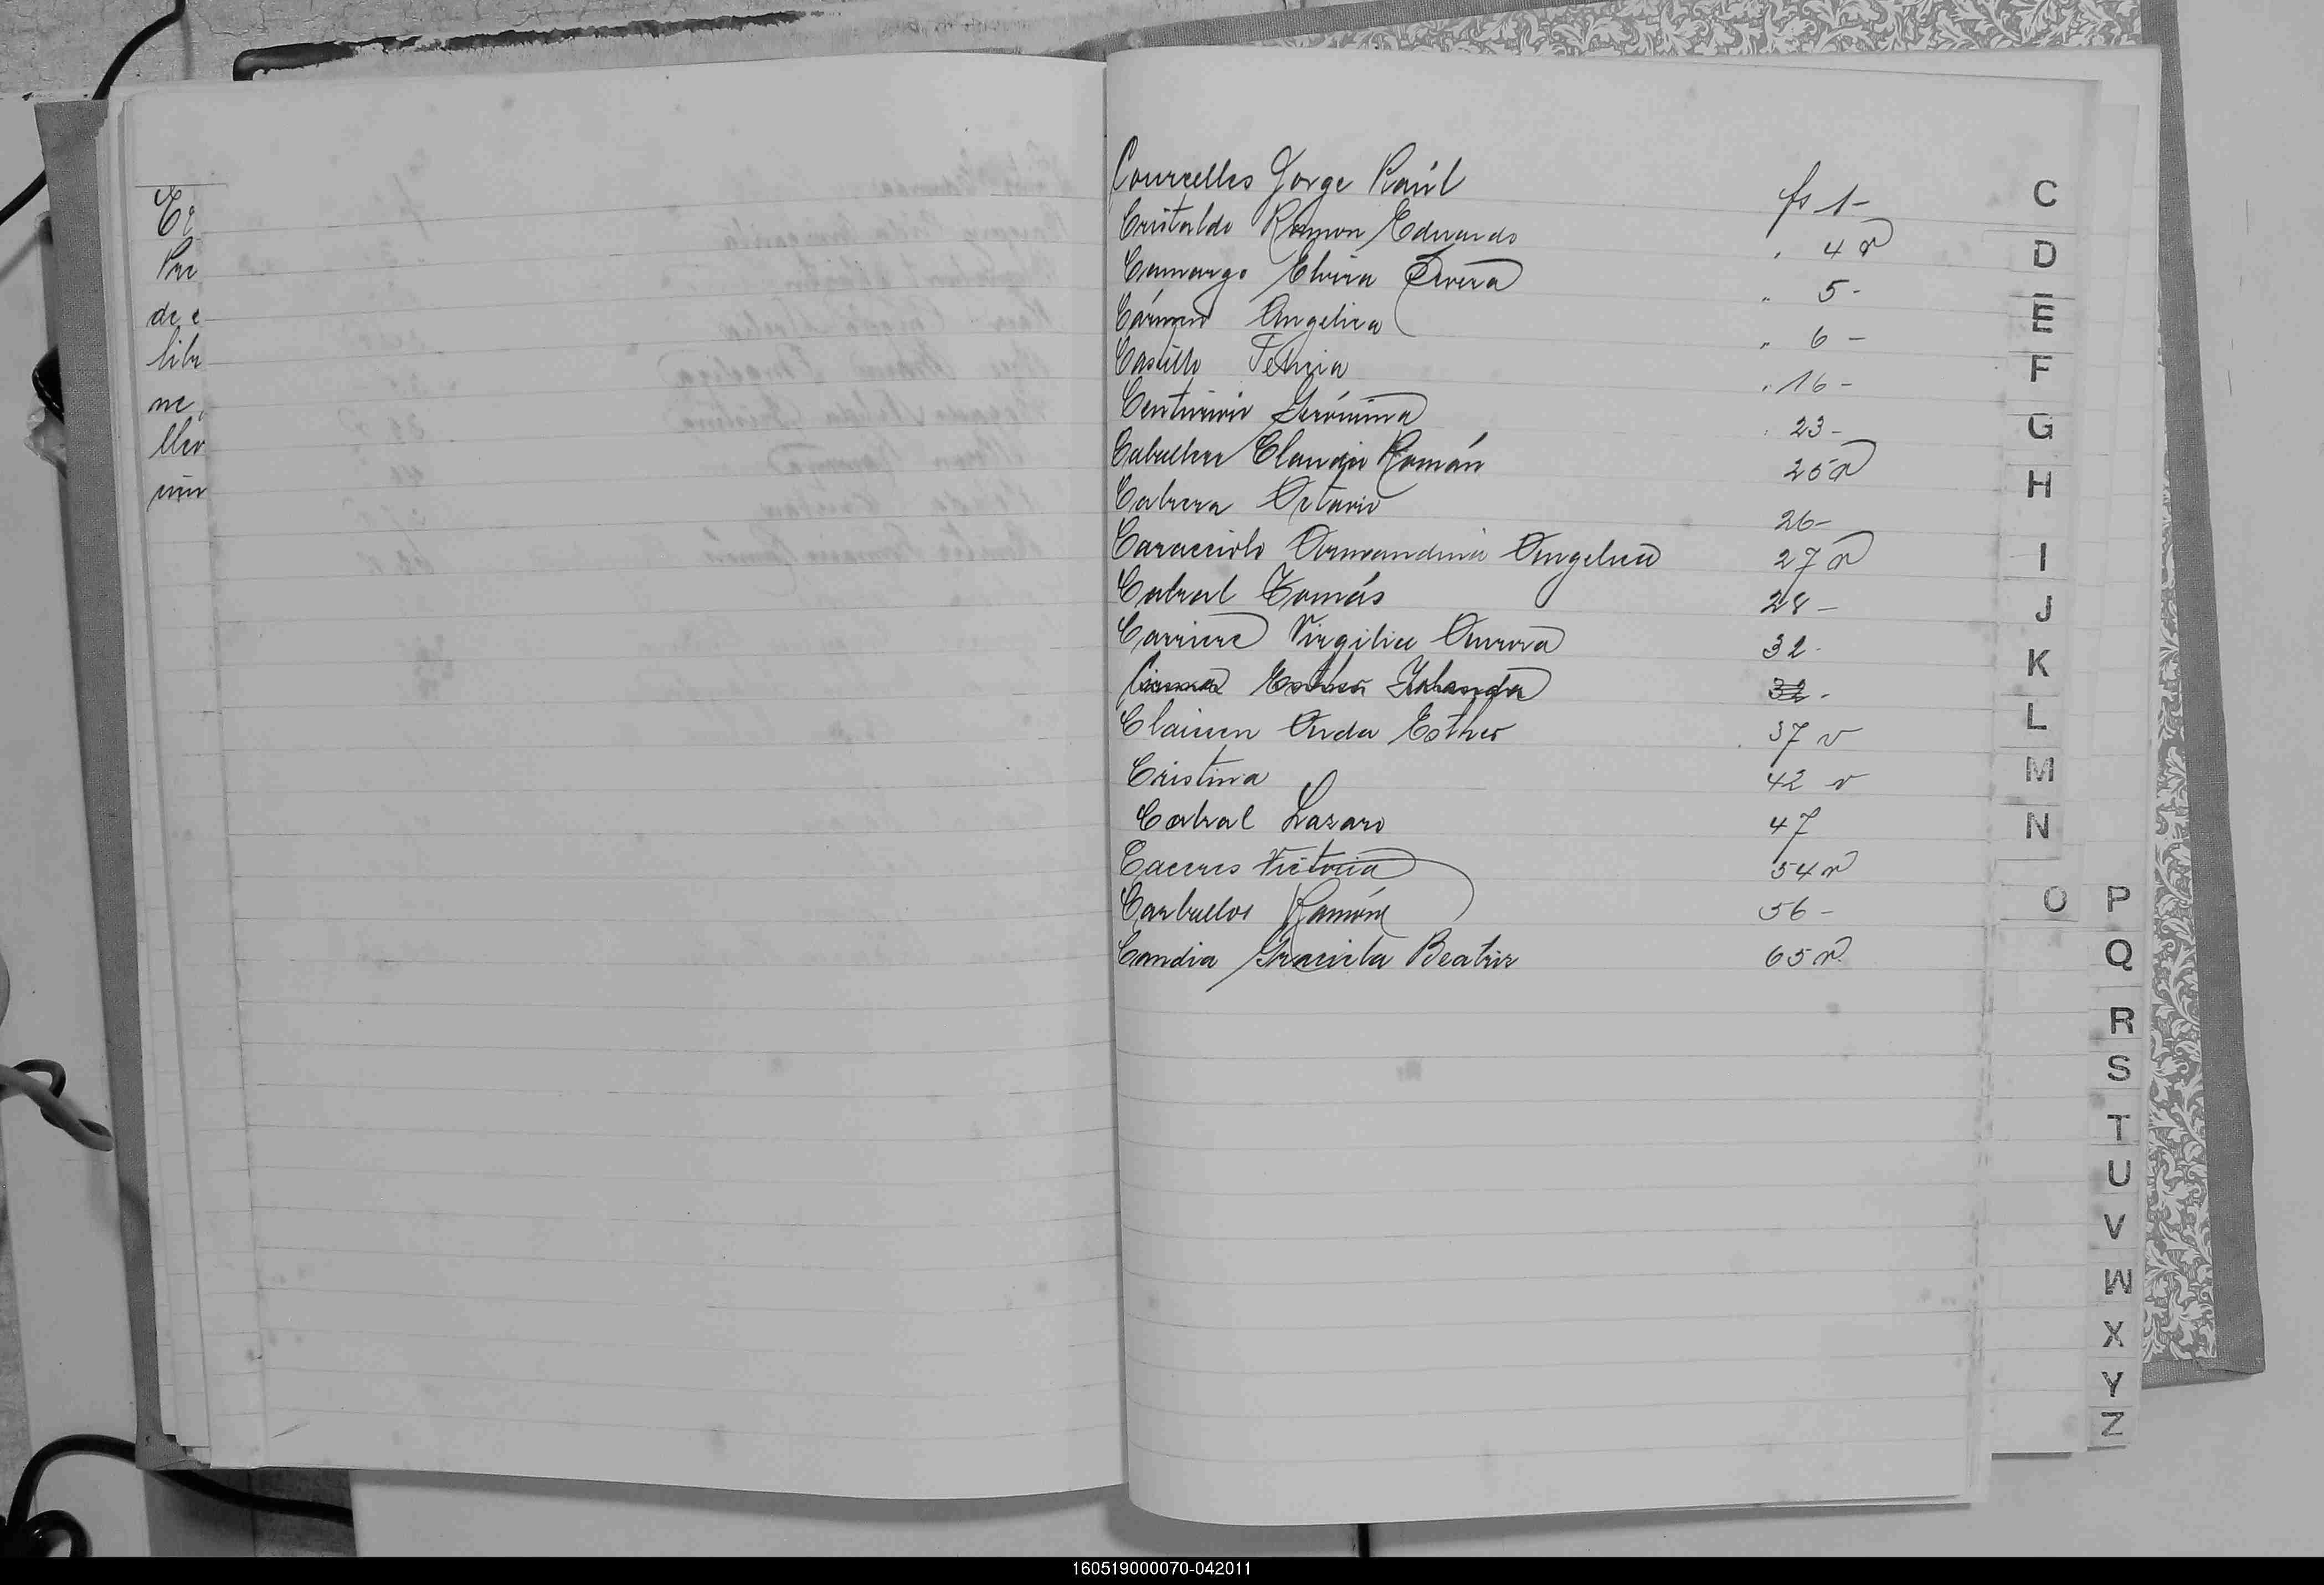 Er
Pre
de e
libr
ne
lleo
min
Courcelles Jorge Raúl fs 1-
Cristaldo Ramon Eduardo " 4 v
Camargo Elvira Elvera " 5-
Cármen Angelica " 6-
Castillo Felicia " 16-
Centurión Gerónima " 23-
Caballero Claudio Román 25 v
Cabrera Octavio 26-
Caracciolo Armandina Angelica 27 v
Cabral Tomás 28-
Carriere Virgilia Aurora 32-
Esther Yolanda 32-
Claiven Aida Esther 37 v
Cristina 42 v
Cabral Lazaro 47
Caceres Victoria 54 v
Carbullos Ramón 56-
Candia Graciela Beatriz 65 v
C
D
E
F
G
H
I
J
K
L
M
N
O P
Q
R
S
T
U
V
W
X
Y
Z
160519000070-042011